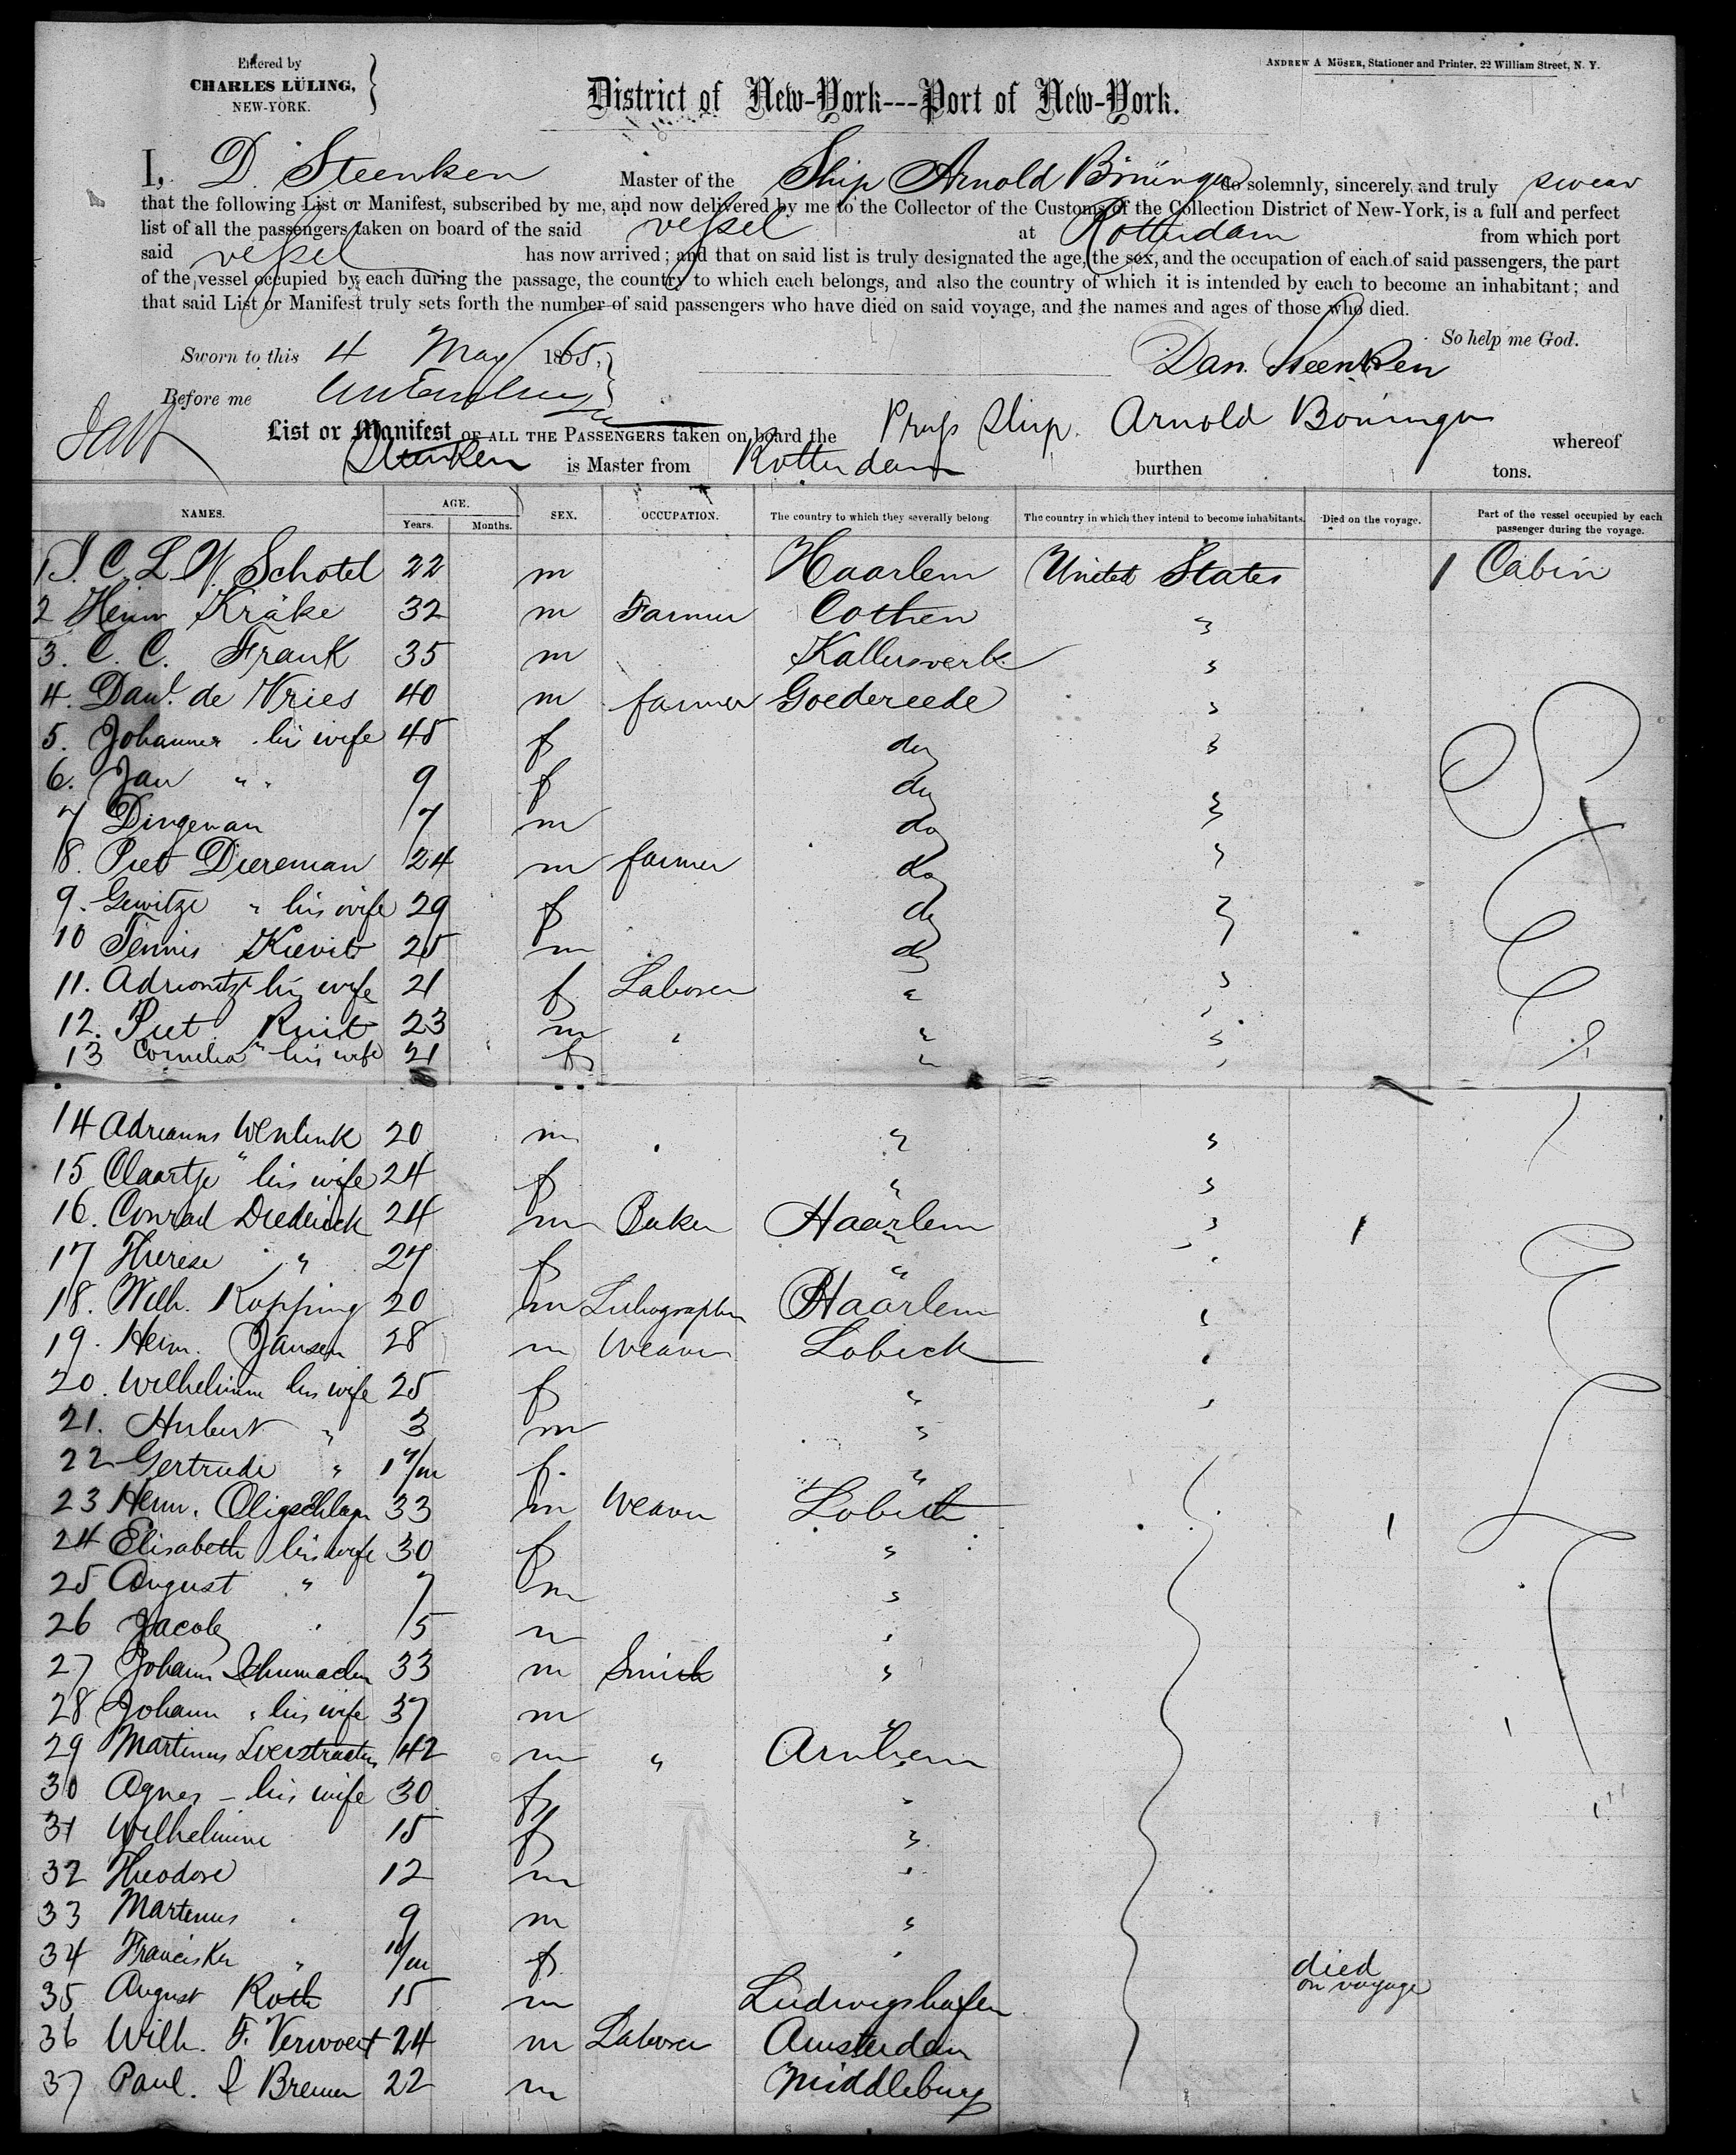 Entered by
CHARLES LÜLING,
NEW-YORK.
ANDREW A MÖSER, Stationer and Printer, 22 William Street, N. Y.
District of New-York---Port of New-York.
I, D. Steenken Master of the Ship Arnold Böninger do solemnly, sincerely and truly swear
that the following List or Manifest, subscribed by me, and now delivered by me to the Collector of the Customs of the Collection District of New-York, is a full and perfect
list of all the passengers taken on board of the said vessel at Rotterdam from which port
said vessel has now arrived; and that on said list is truly designated the age, the sex, and the occupation of each of said passengers, the part
of the vessel occupied by each during the passage, the country to which each belongs, and also the country of which it is intended by each to become an inhabitant; and
that said List or Manifest truly sets forth the number of said passengers who have died on said voyage, and the names and ages of those who died.
So help me God.
Sworn to this 4 May 1865.
Dan. Steenken
Before me
List or Manifest OF ALL THE PASSENGERS taken on board the Pruss Ship. Arnold Böninger whereof
Steenken is Master from Rotterdam burthen tons.
NAMES. AGE. Years. Months. SEX. OCCUPATION. The country to which they severally belong. The country in which they intend to become inhabitants. Died on the voyage. Part of the vessel occupied by each passenger during the voyage.
1 J. C. L. W. Schotel 22 m Haarlem United States 1 Cabin
2 Heinr Kräke 32 m Farmer Cothen "
3. C. C. Frank 35 m "
4. Danl. de Vries 40 m farmer Goedereede "
5. Johanner his wife 45 f do "
6. Jan " " 9 f do
7 Dingeman 7 m do "
8. Piet Diereman 24 m farmer do "
9. " his wife 29 f do "
10 Tennis Kievit 25 m do
11. his wife 21 f Laborer " "
12. Piet Ruit 23 m " " "
13 Cornelia " his wife 21 f " "
14 Adrianus Wenlink 20 m " "
15 Claartje " his wife 24 f " "
16. Conrad Diederick 24 m Baker Haarlem " 1
17 Therese " 27 f " "
18. Wilh. Kopping 20 m Lithographer Haarlem "
19. Heinr. Jansen 28 m Weaver Lobick "
20. Wilhelmine his wife 25 f " "
21. Hubert " 3 m "
22 Gertrude " 1 f. "
23 Heinr. Oligschläger 33 m Weaver Lobith 1
24 Elisabeth his wife 30 f "
25 August " 7 m "
26 Jacob " 5 m "
27 Johann Schumacher 33 m Smith "
28 Johann " his wife 37 m "
29 Martinus 42 m " Arnhem
30 Agnes - his wife 30 f "
31 Wilhelmine 15 f "
32 Theodore 12 m "
33 Martinus 9 m "
34 Franciska " 11/m f " died on voyage
35 August Roth 15 m Ludwigshafen
36 Wilh. F. Verwoert 24 m Laborer Amsterdam
37 Paul. J Bremer 22 m Middleburg